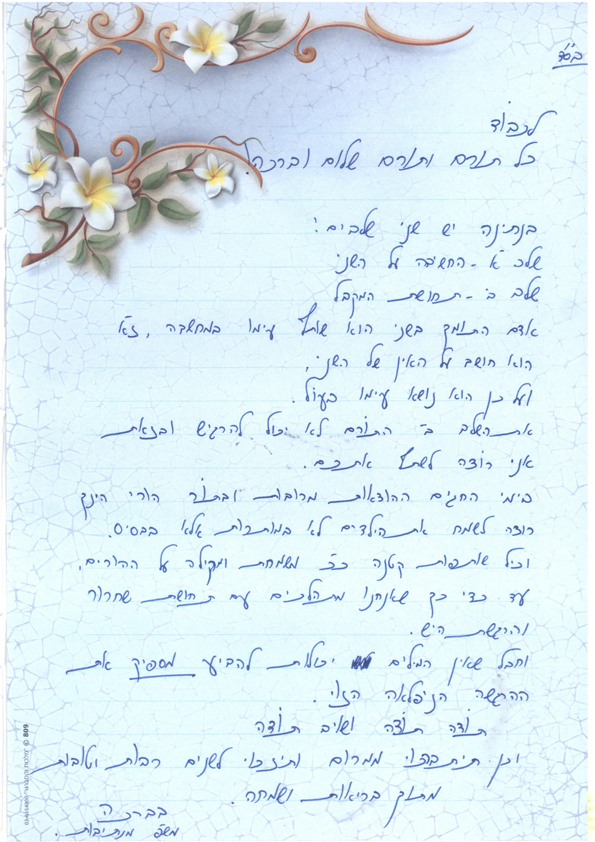 בס"ד
לכבוד
כל תורם ותורם שלום וברכה!
בנתינה יש שני שלבים:
שלב א' - החשיבה על השני
שלב ב' - תחושת המקבל
אדם התומך בשני הוא שותף עימו במחשבה, ז"א
הוא חושב על האין של השני,
ועל כן הוא נושא עימו בעול.
את השלב ב' התורם לא יכול להרגיש ובזאת
אני רוצה לשתף אתכם.
בימי החגים ההוצאות מרובות ובתור הורי הינך
רוצה לשמח את הילדים לא במותרות אלא בבסיס.
וכיל שותפות קטנה כ"כ משמחת ומקילה על ההורים,
עד כדי כך שאנחנו מתהלכים עם תחושת שחרור
והרגשת היש.
וחבל שאין המילים יכולות להביע מספיק את
ההרגשה הניפלאה הזוי.
תודה תודה ושוב תודה
וכן תיתברכוי ממרום ותיזכוי לשנים רבות וטובות
מתוך בריאות ושמחה.
בברכה
משפ' מנתיבות.
809 ©